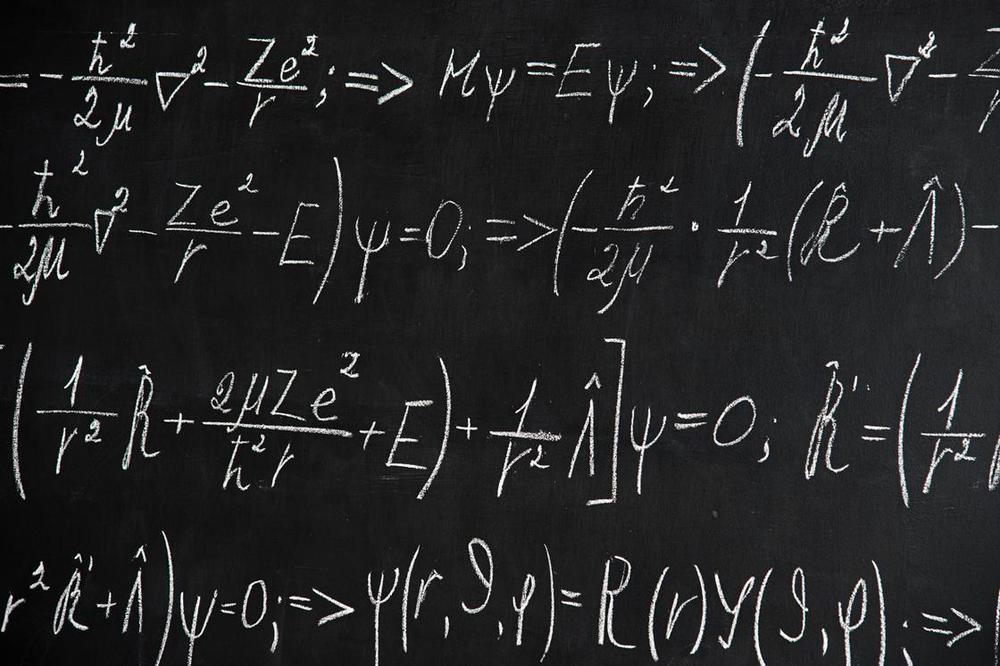 = - ħ²/2μ ∇² - Ze²/r ; => Hψ = Eψ; => (- ħ²/2μ ∇² - Z
- ħ²/2μ ∇² - Ze²/r - E)ψ = 0; => (- ħ²/2μ · 1/r² (R̂ + Λ̂) -
(1/r² R̂ + 2μZe²/ħ²r + E) + 1/r² Λ̂]ψ = 0; R̂' = (1/r²
r² R̂' + Λ̂)ψ = 0; => ψ(r, ϑ, φ) = R(r)Y(ϑ, φ); =>